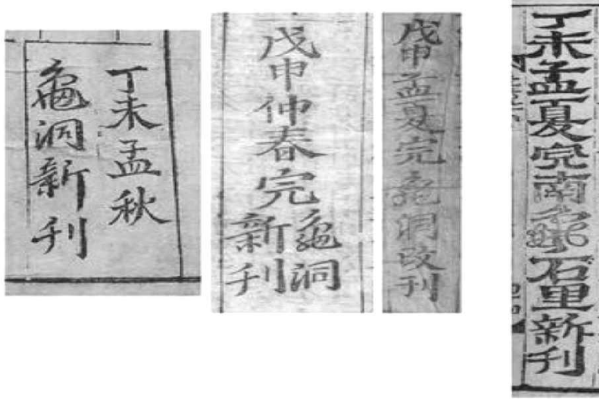 丁未孟秋
龜洞新刊
戊申仲春完
龜洞
新刊
戊申孟夏完龜洞改刊
丁未孟夏完南龜石里新刊